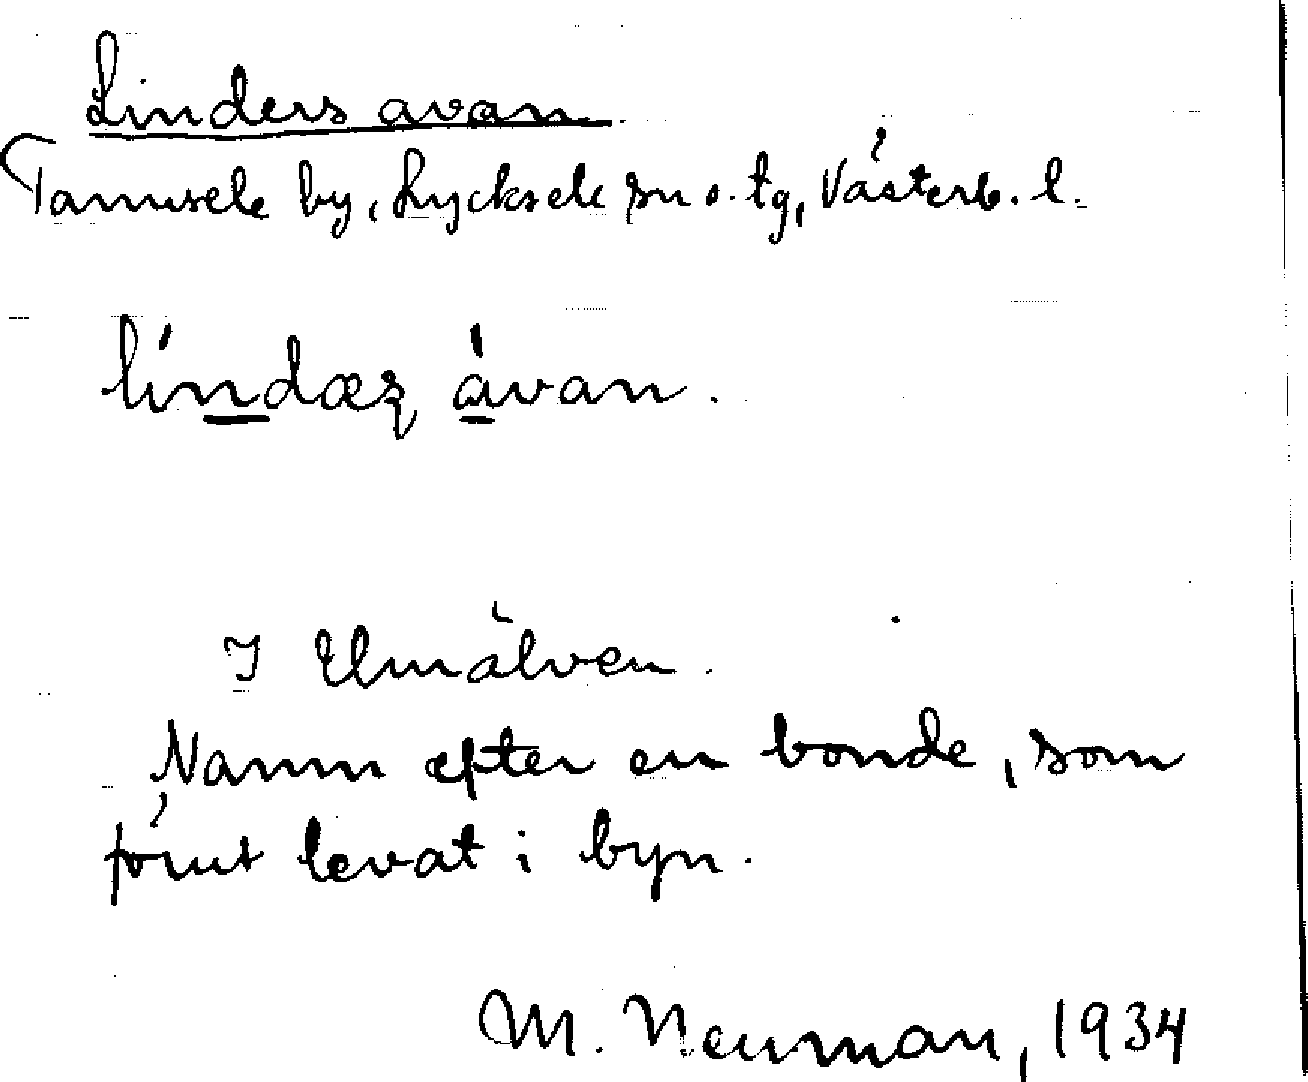 Linders avan
Tannsele by, Lycksele sn o. tg, Västerb. l.
I Umälven.
Namn efter en bonde, som
förut levat i byn.
M. Neuman, 1934